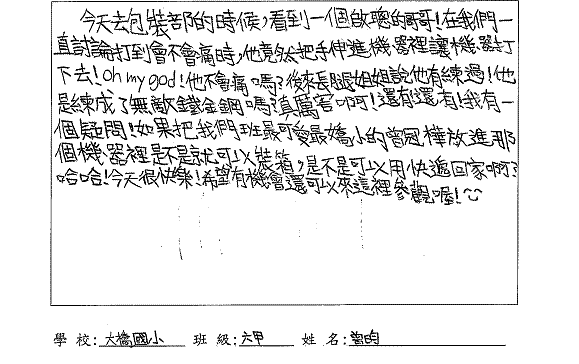 今天去包裝部的時候，看到一個啟聰的哥哥！在我們一
直討論打到會不會痛時，他竟然把手伸進機器裡讓機器打
下去！Oh my god！他不會痛嗎？後來長腿姐姐說他有練過！他
是練成了無敵鐵金鋼嗎？真厲害啊！還有還有！我有一
個疑問！如果把我們班最可愛最嬌小的曾冠樺放進那
個機器裡是不是就可以裝箱，是不是可以用快遞回家啊？
哈哈！今天很快樂！希望有機會還可以來這裡參觀喔！
學校：大橋國小 班級：六甲 姓名：曾昀